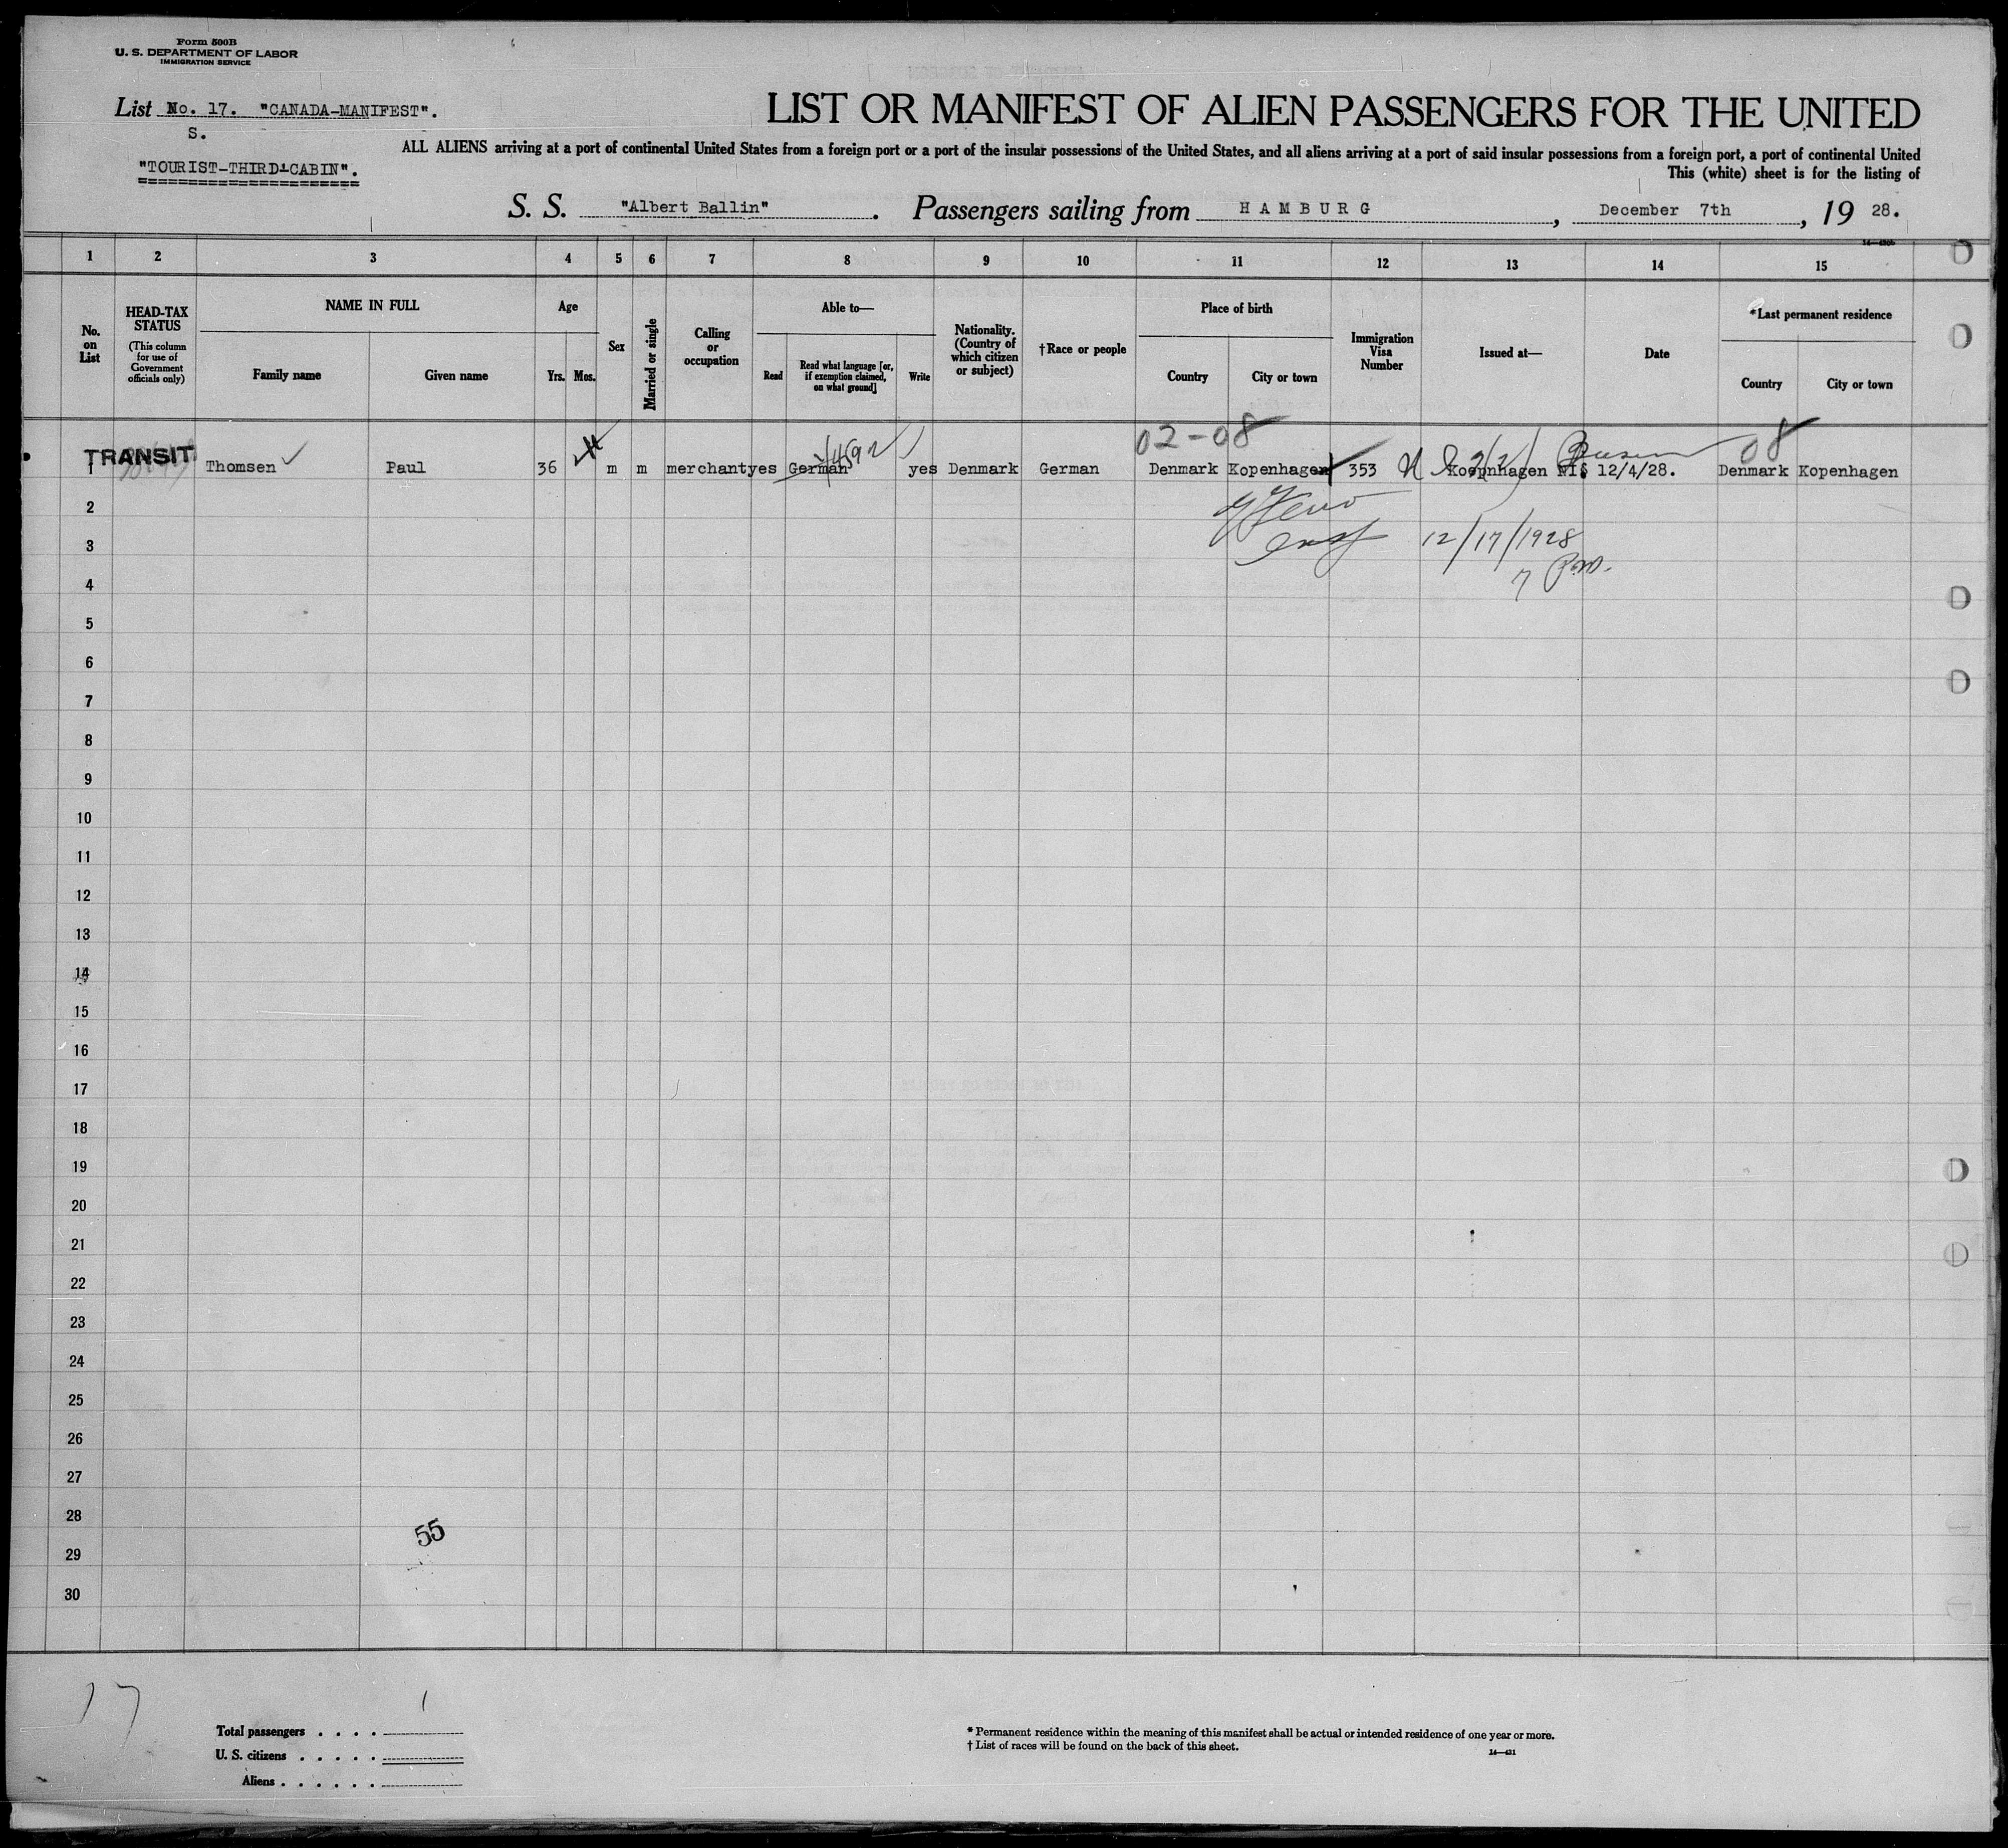 Form 500B
U. S. DEPARTMENT OF LABOR
IMMIGRATION SERVICE
List No. 17. "CANADA-MANIFEST".
S.
"TOURIST-THIRD-CABIN".
LIST OR MANIFEST OF ALIEN PASSENGERS FOR THE UNITED
ALL ALIENS arriving at a port of continental United States from a foreign port or a port of the insular possessions of the United States, and all aliens arriving at a port of said insular possessions from a foreign port, a port of continental United
This (white) sheet is for the listing of
S. S. "Albert Ballin". Passengers sailing from HAMBURG, December 7th, 19 28.
1 2 3 4 5 6 7 8 9 10 11 12 13 14 15
No. on List
HEAD-TAX STATUS
(This column for use of Government officials only)
NAME IN FULL
Family name
Given name
Age
Yrs. Mos.
Sex
Married or single
Calling or occupation
Able to—
Read
Read what language [or, if exemption claimed, on what ground]
Write
Nationality. (Country of which citizen or subject)
†Race or people
Place of birth
Country
City or town
Immigration Visa Number
Issued at—
Date
*Last permanent residence
Country
City or town
02-08
08
TRANSIT Thomsen Paul 36 m m merchant yes German yes Denmark German Denmark Kopenhagen 353 Kopenhagen 12/4/28. Denmark Kopenhagen
2
3 12/17/1928
4 7 P.M.
5
6
7
8
9
10
11
12
13
14
15
16
17
18
19
20
21
22
23
24
25
26
27
28
55
29
30
17
1
Total passengers
U. S. citizens
Aliens
* Permanent residence within the meaning of this manifest shall be actual or intended residence of one year or more.
† List of races will be found on the back of this sheet.
14—431